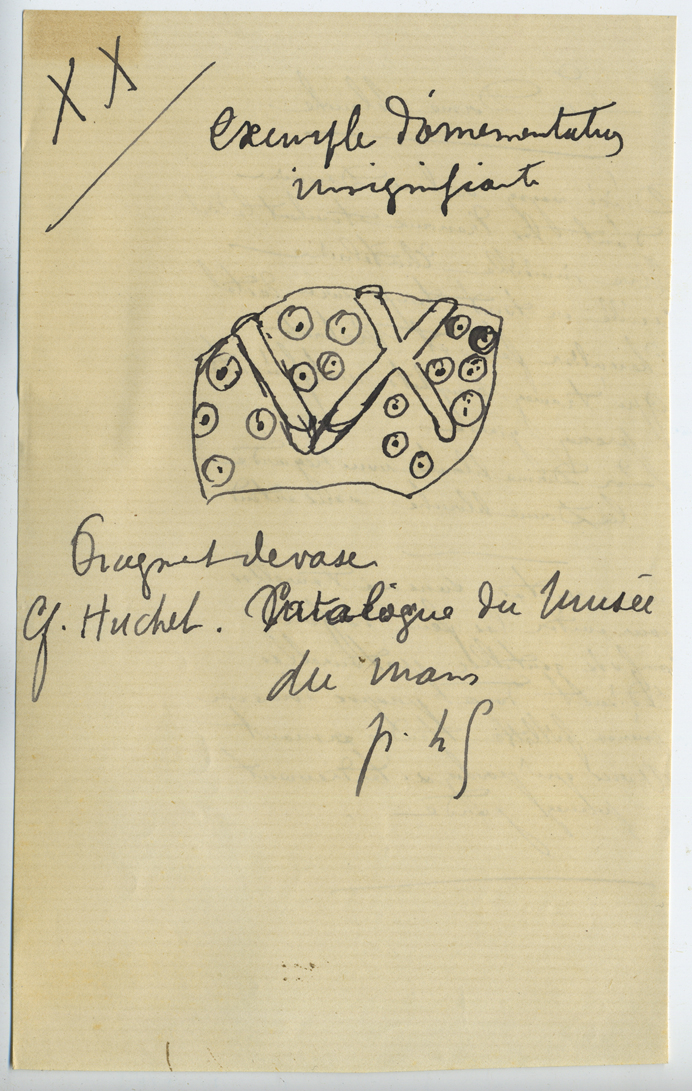 XX
exemple d'ornementation
insignifiante
Fragment de vase
Cf. Hucher. Catalogue du Musée
du Mans
p.